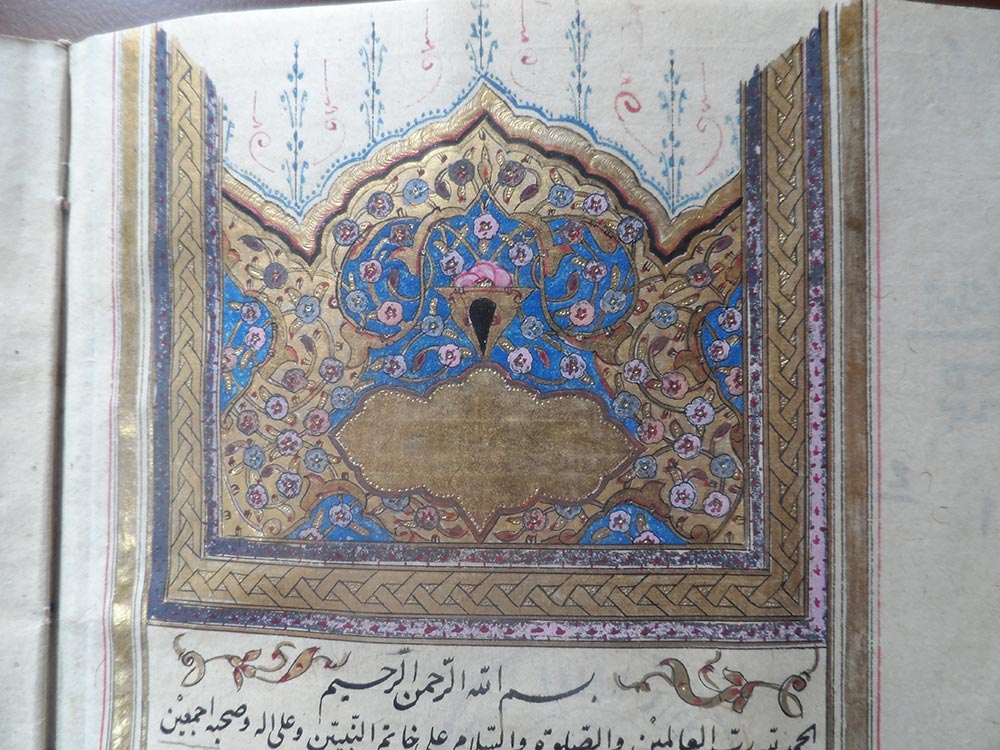 بسم الله الرّحمن الرّحيم
الحمد لله ربّ العالمين والصّلوة والسّلام على خاتم النّبيّن وعلى اله وصحبه اجمعين